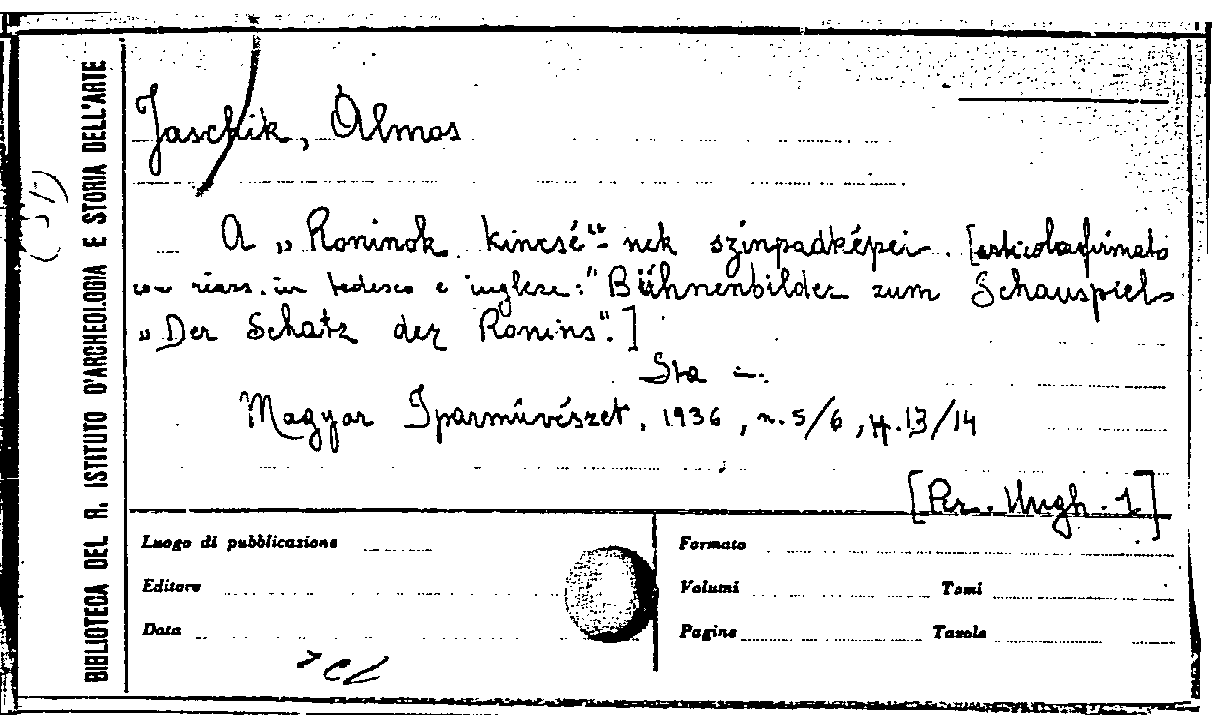 BIBLIOTECA DEL R. ISTITUTO D'ARCHEOLOGIA E STORIA DELL'ARTE
Jaschik, Álmos
A „Roninok kincsé"-nek színpadképei. [articolo firmato
con riass. in tedesco e inglese: "Bühnenbilder zum Schauspiels
„Der Schatz der Ronins".]
Sta
Magyar Iparművészet, 1936, n. 5/6, p. 13/14
[Per. Ungh. 1]
Luogo di pubblicazione
Formato
Editore
Volumi Tomi
Data
Pagine Tavole